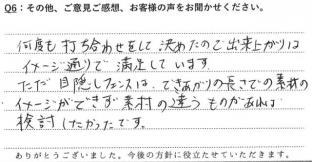 Q6：その他、ご意見ご感想、お客様の声をお聞かせください。
何度も打ち合わせをして決めたので出来上がりは
イメージ通りで満足しています
ただ目隠しフェンスは、できあがりの長さでの素材の
イメージができず素材の違うものがあれば
検討したかったです。
ありがとうございました。今後の方針に役立たせていただきます。